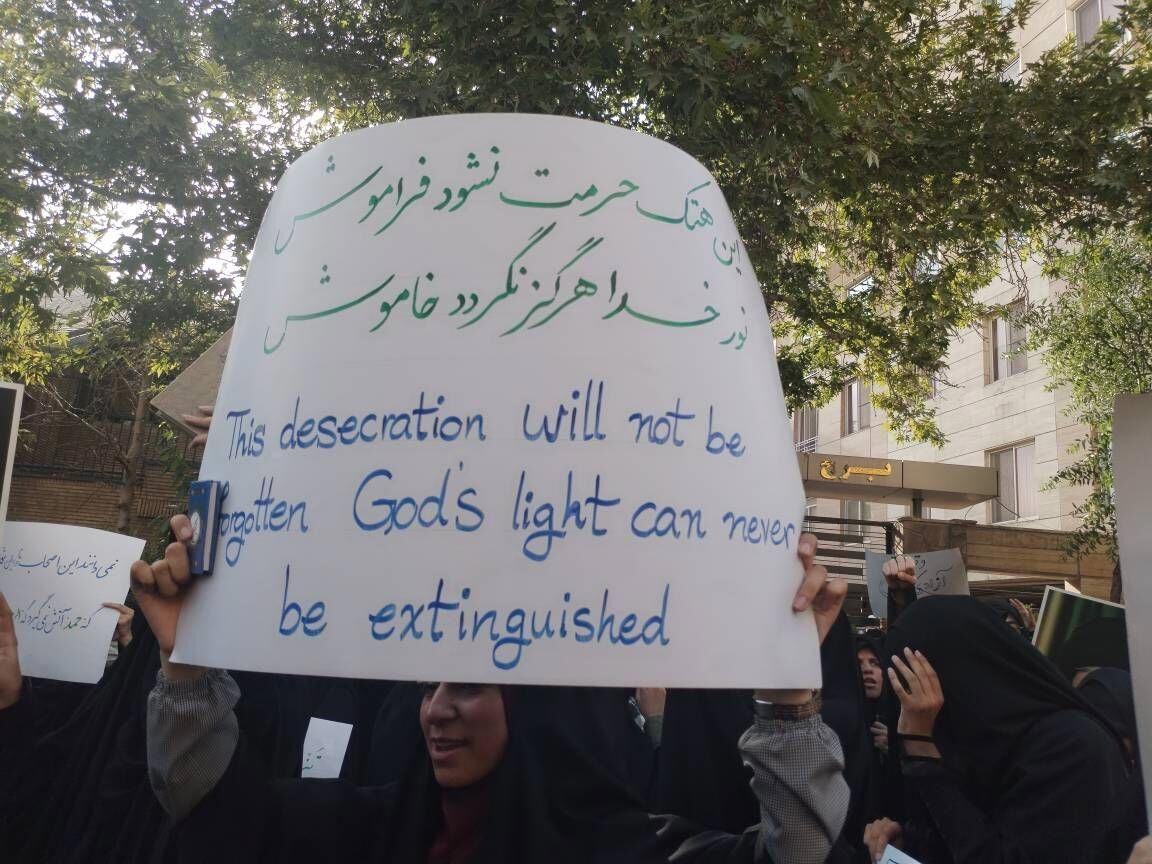 این هتک حرمت نشود فراموش
نور خدا هرگز نگردد خاموش
This desecration will not be
forgotten God's light can never
be extinguished
برج
نمی دانند این اصحاب
که حمد آتش نمی گیرد